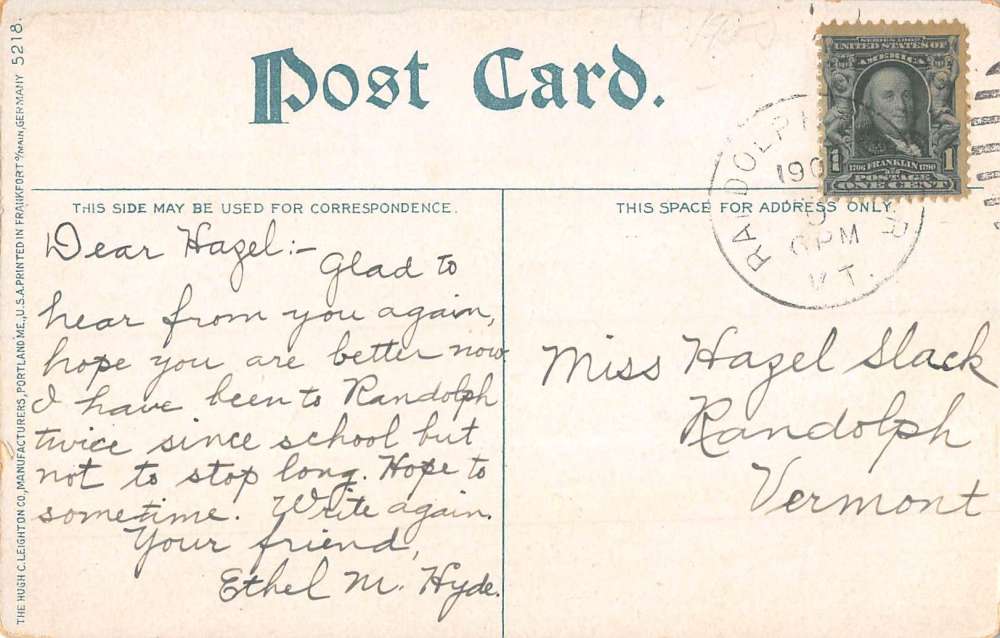 Post Card.
SERIES 1902
UNITED STATES OF
AMERICA
1706 FRANKLIN 1790
POSTAGE
1 ONE CENT 1
RANDOLPH
190
PM
VT.
THIS SIDE MAY BE USED FOR CORRESPONDENCE.
Dear Hazel:-
Glad to
hear from you again,
hope you are better now.
I have been to Randolph
twice since school but
not to stop long. Hope to
sometime. Write again.
Your friend,
Ethel M. Hyde.
THIS SPACE FOR ADDRESS ONLY.
Miss Hazel Slack
Randolph
Vermont
THE HUGH C. LEIGHTON CO., MANUFACTURERS, PORTLAND ME., U.S.A. PRINTED IN FRANKFORT o/MAIN, GERMANY 5218.